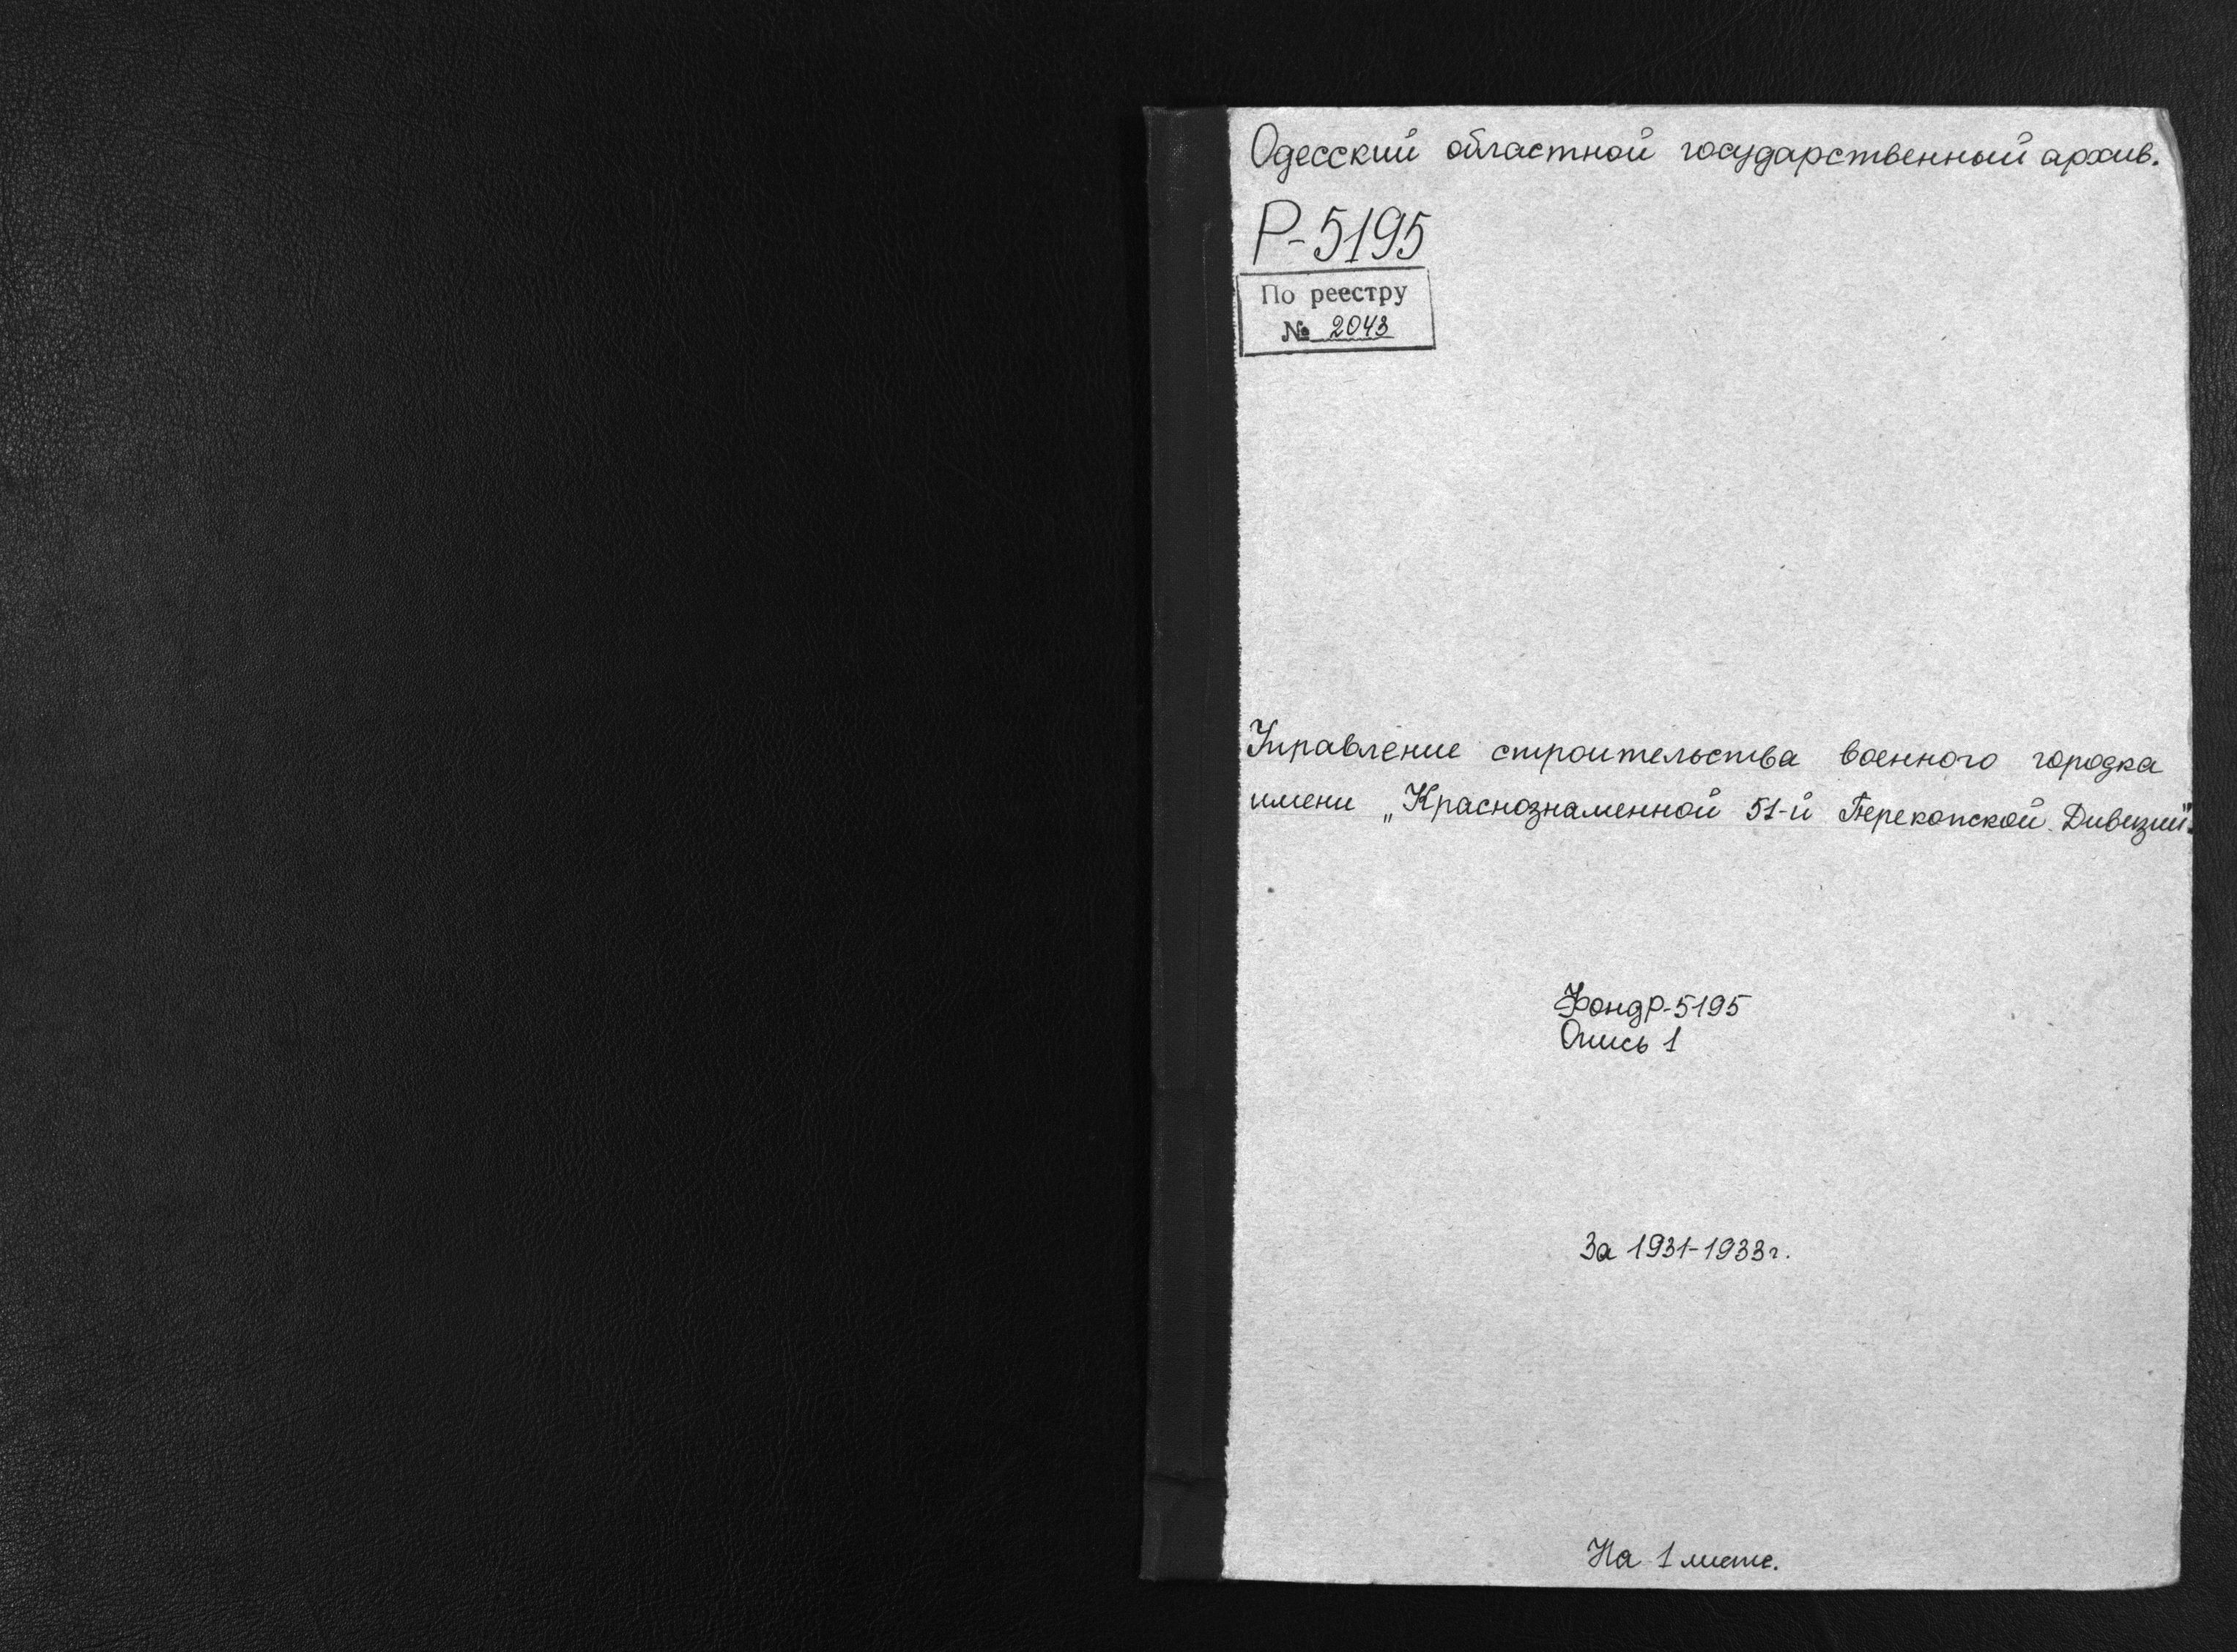 Одесский областной государственный архив.
Р-5195
По реестру
№ 2043
Управление строительства военного городка
имени „Краснознаменной 51-й Перекопской Дивизии".
Фонд Р-5195
Опись 1
За 1931-1933г.
На 1 листе.